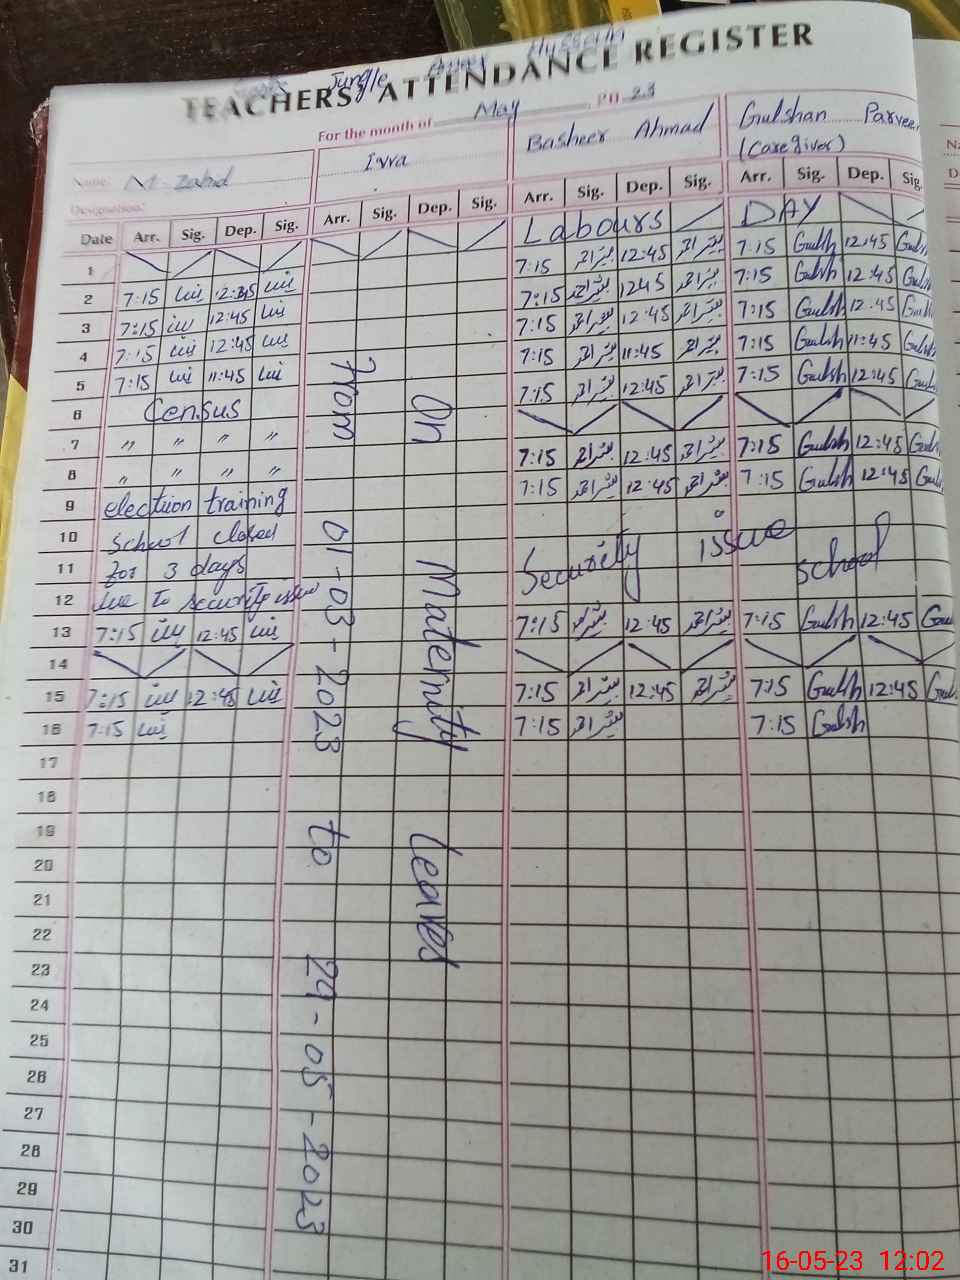 Jungle Hussain
TEACHERS' ATTENDANCE REGISTER
For the month of May 20 23
Name: M. Zahid Iqra Basheer Ahmad Gulshan Parveen
Designation: (Care giver)
Date Arr. Sig. Dep. Sig. Arr. Sig. Dep. Sig. Arr. Sig. Dep. Sig. Arr. Sig. Dep. Sig.
1 Labours DAY
2 7:15 12:45 7:15 بشیراحمد 12:45 بشیراحمد 7:15 Gulsh 12:45 Gulsh
3 7:15 12:45 7:15 بشیراحمد 12:45 بشیراحمد 7:15 Gulsh 12:45 Gulsh
4 7:15 12:45 7:15 بشیراحمد 12:45 بشیراحمد 7:15 Gulsh 12:45 Gulsh
5 7:15 11:45 7:15 بشیراحمد 11:45 بشیراحمد 7:15 Gulsh 11:45 Gulsh
6 Census 7:15 بشیراحمد 12:45 بشیراحمد 7:15 Gulsh 12:45 Gulsh
7 " " " "
8 " " " " 7:15 بشیراحمد 12:45 بشیراحمد 7:15 Gulsh 12:45 Gulsh
9 election training 7:15 بشیراحمد 12:45 بشیراحمد 7:15 Gulsh 12:45 Gulsh
10 School closed
11 for 3 days Security issue school
12 due to security issue
13 7:15 12:45 7:15 بشیراحمد 12:45 بشیراحمد 7:15 Gulsh 12:45 Gulsh
14
15 7:15 12:45 7:15 بشیراحمد 12:45 بشیراحمد 7:15 Gulsh 12:45 Gulsh
16 7:15 7:15 بشیراحمد 7:15 Gulsh
17
18
19
20
21
22
23
24
25
26
27
28
29
30
31
On Maternity leaves
From 01-03-2023 to 29-05-2023
16-05-23 12:02